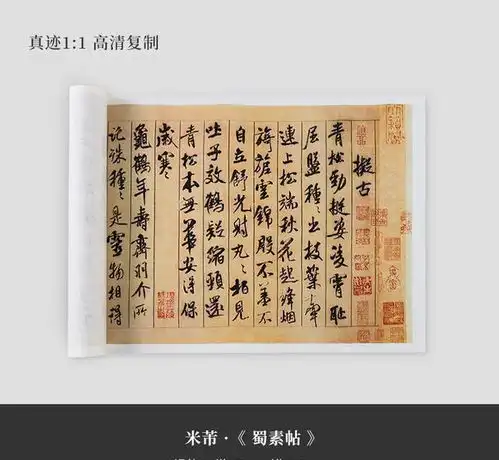 真迹1:1 高清复制
擬古
青松勁挺姿凌霄恥
屈盤種〻出枝葉牽
連上松端秋花起絳烟
旖旎雲錦殷不羞不
自立舒光射丸〻柏見
吐子效鶴疑縮頸還
青松本無華安得保
歲寒
龜鶴年壽齊羽介所
託殊種〻是靈物相得
米芾·《 蜀素帖 》